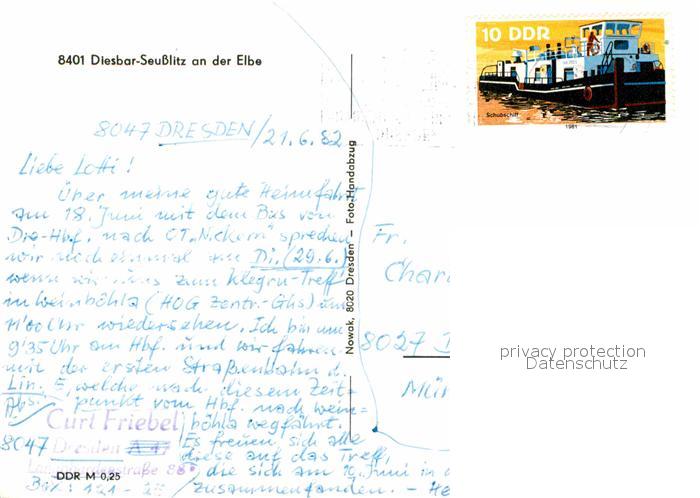 8401 Diesbar-Seußlitz an der Elbe
10 DDR
Schubschiff
1981
8047 DRESDEN/21.6.82
Liebe Lotti!
Über meine gute Heimfahrt
am 18. Juni mit dem Bus von
Dre-Hbf. nach OT „Nickern" sprechen
wir noch einmal am Di. (29.6.)
wenn wir uns zum Klegru-Treff
in Weinböhla (HOG Zentr.-Ghs) um
11'00 Uhr wiedersehen. Ich bin um
9'35 Uhr am Hbf. und wir fahren
mit der ersten Straßenbahn d.
Lin. 5, welche nach diesem Zeit-
punkt vom Hbf. nach Wein=
böhla wegfährt.
Es freuen sich alle
diese auf das Treff,
die sich am Juni in
zusammenfanden. –
Abs.
Curt Friebel
8047 Dresden A 47
straße
DDR M 0,25
Nowak, 8020 Dresden – Foto-Handabzug
Fr.
Char
8027
Mün
privacy protection
Datenschutz